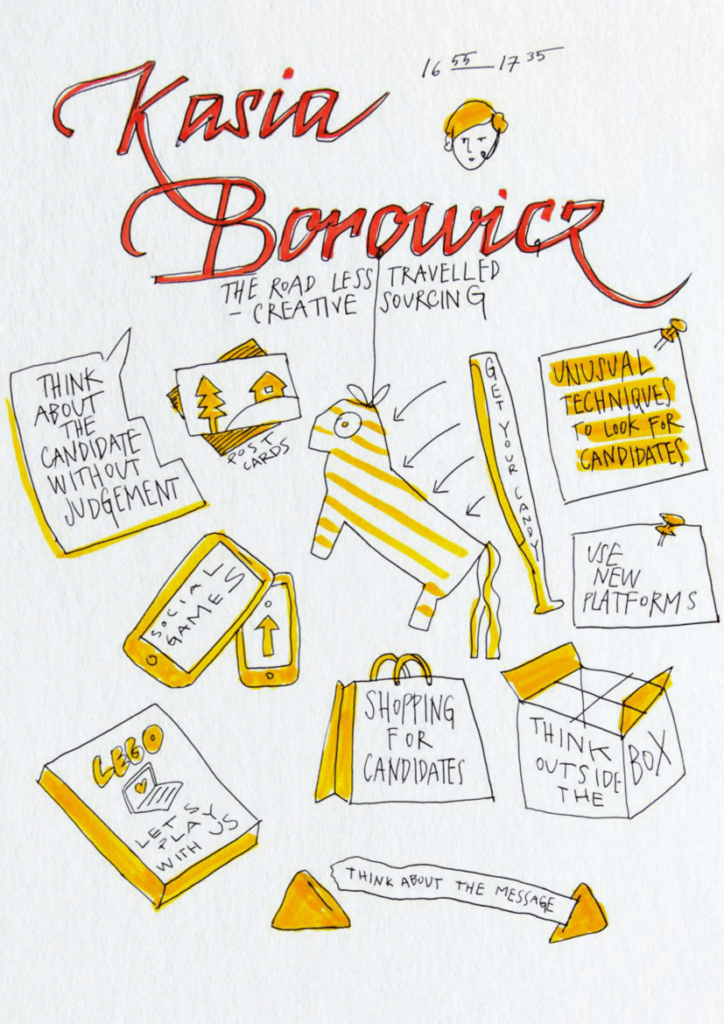 16 55 — 17 35
Kasia
Borowicz
THE ROAD LESS TRAVELLED
– CREATIVE SOURCING
THINK
ABOUT
THE
CANDIDATE
WITHOUT
JUDGEMENT
POST
CARDS
GET YOUR CANDY
UNUSUAL
TECHNIQUES
TO LOOK FOR
CANDIDATES
USE
NEW
PLATFORMS
SOCIAL
GAMES
SHOPPING
FOR
CANDIDATES
THINK
OUTSIDE
THE
BOX
LEGO
LET'S
PLAY
WITH US
THINK ABOUT THE MESSAGE